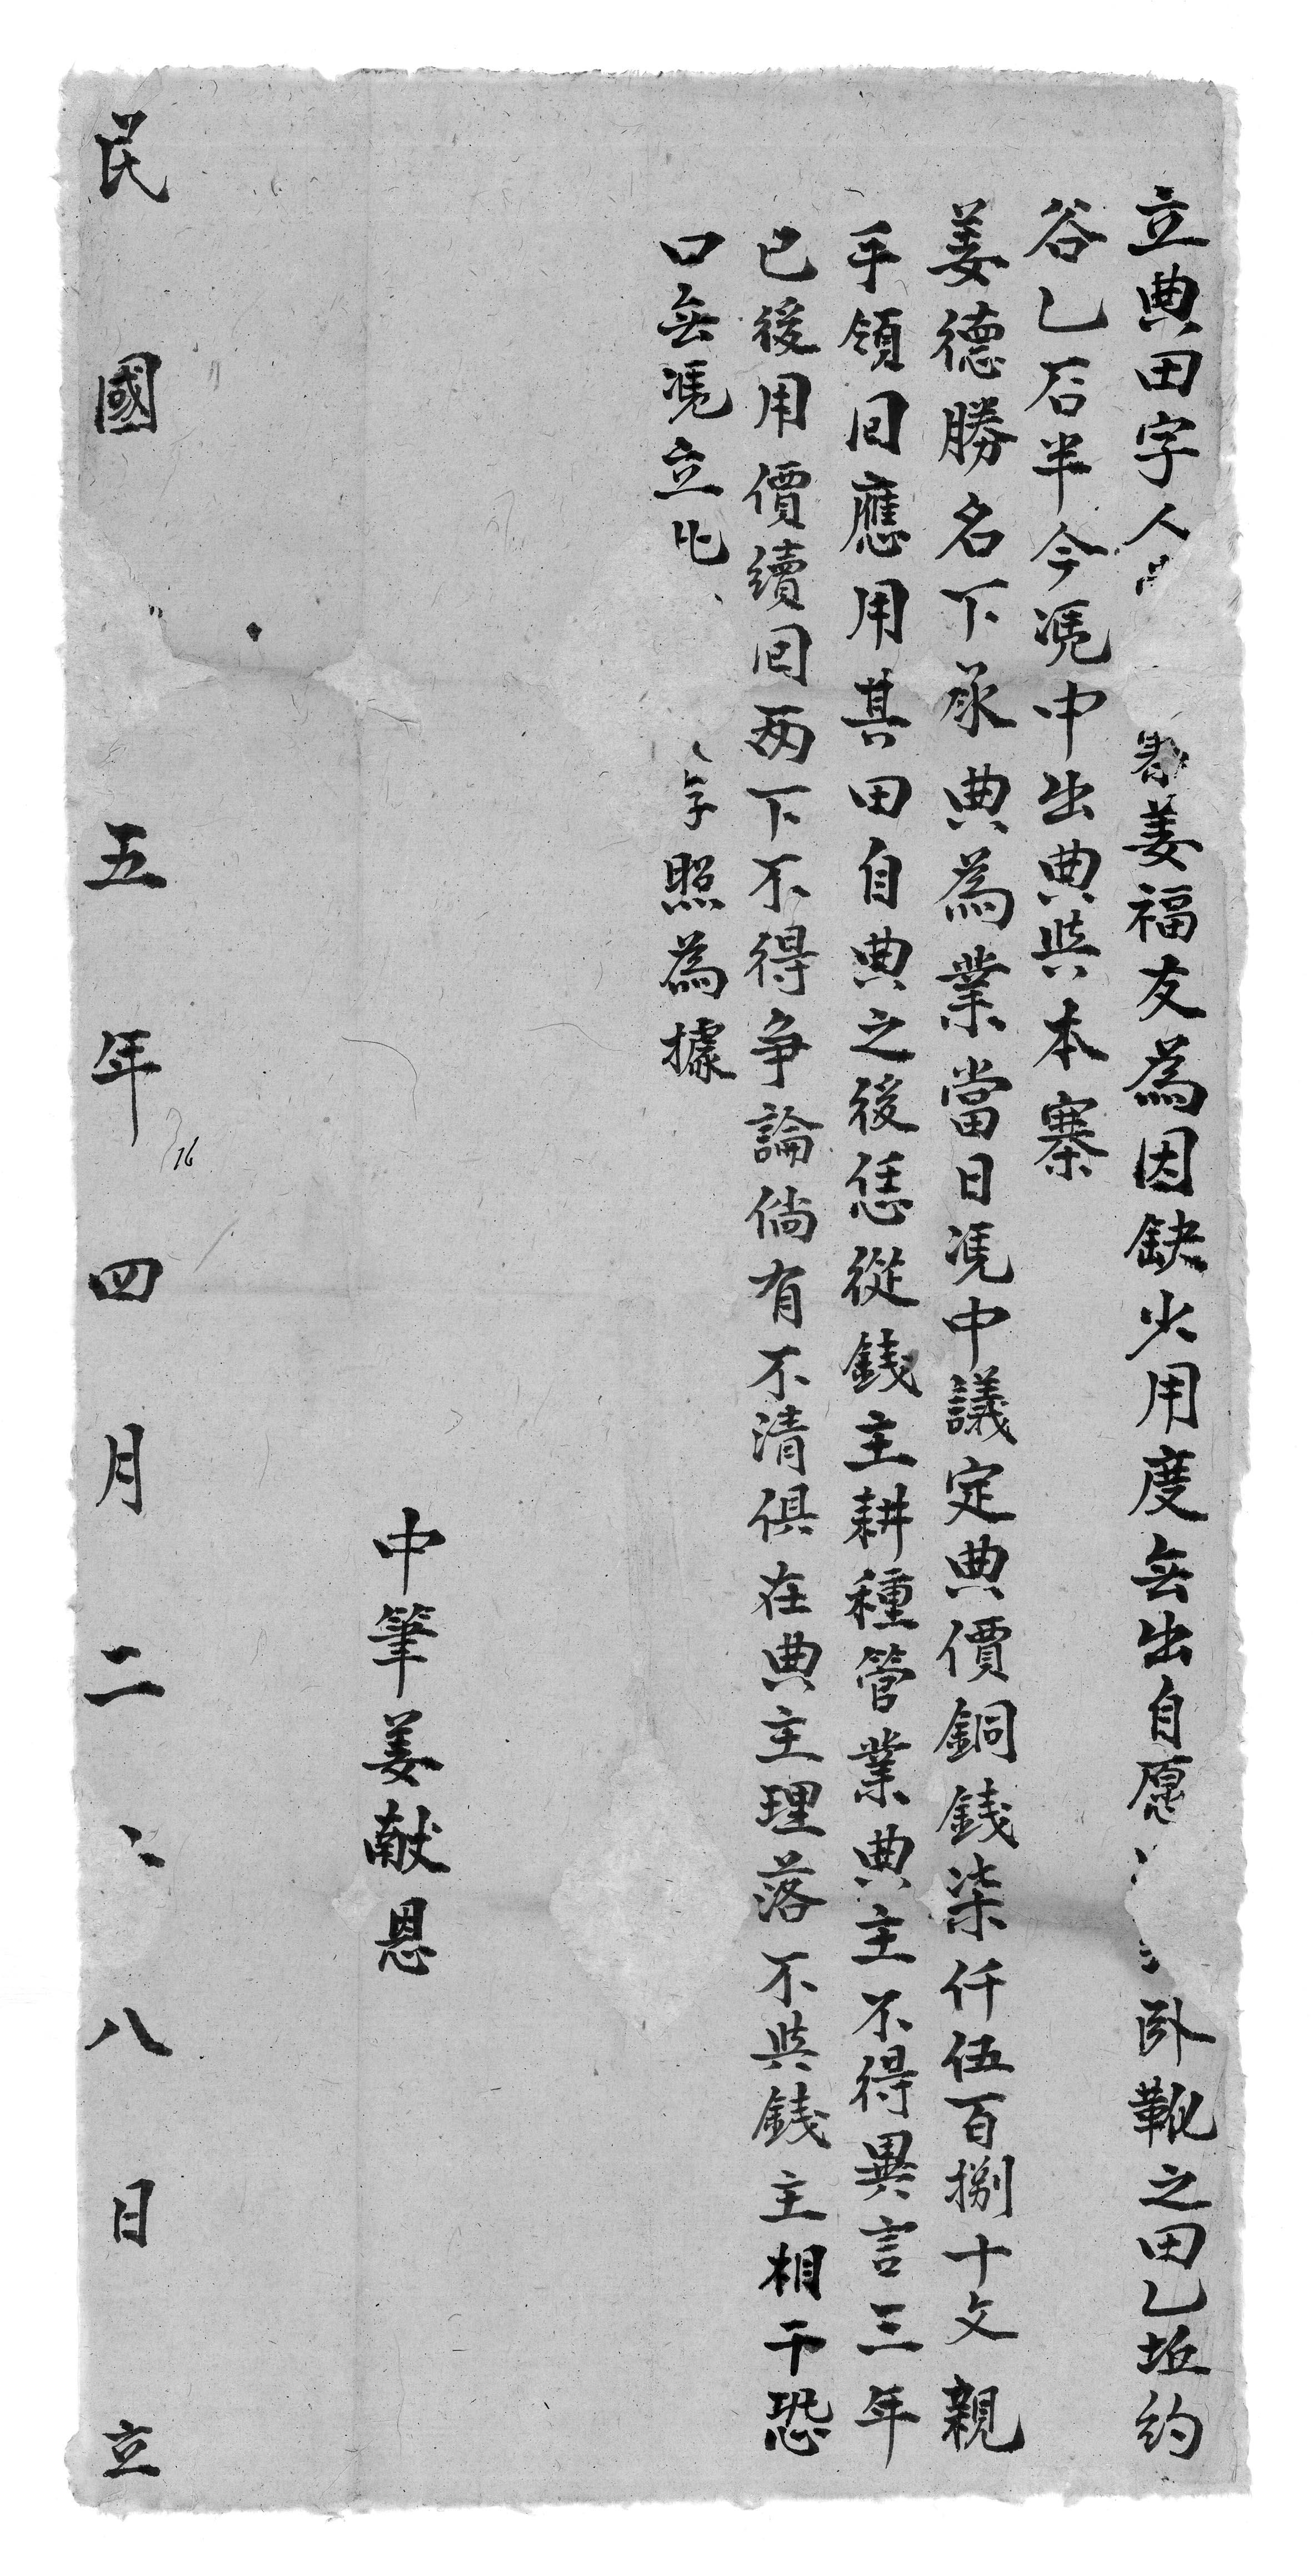 立典田字人姜福友為因缺少用度無出自愿卧靴之田乙坵約
谷乙石半今凴中出典與本寨
姜德勝名下承典為業當日凴中議定典價銅錢柒仟伍百捌十文親
手領回應用其田自典之後恁從錢主耕種管業典主不得異言三年
已後用價續回两下不得争論倘有不清俱在典主理落不與錢主相干恐
口無凴立字照為據
中筆姜献恩
民國五年四月二八日立
16